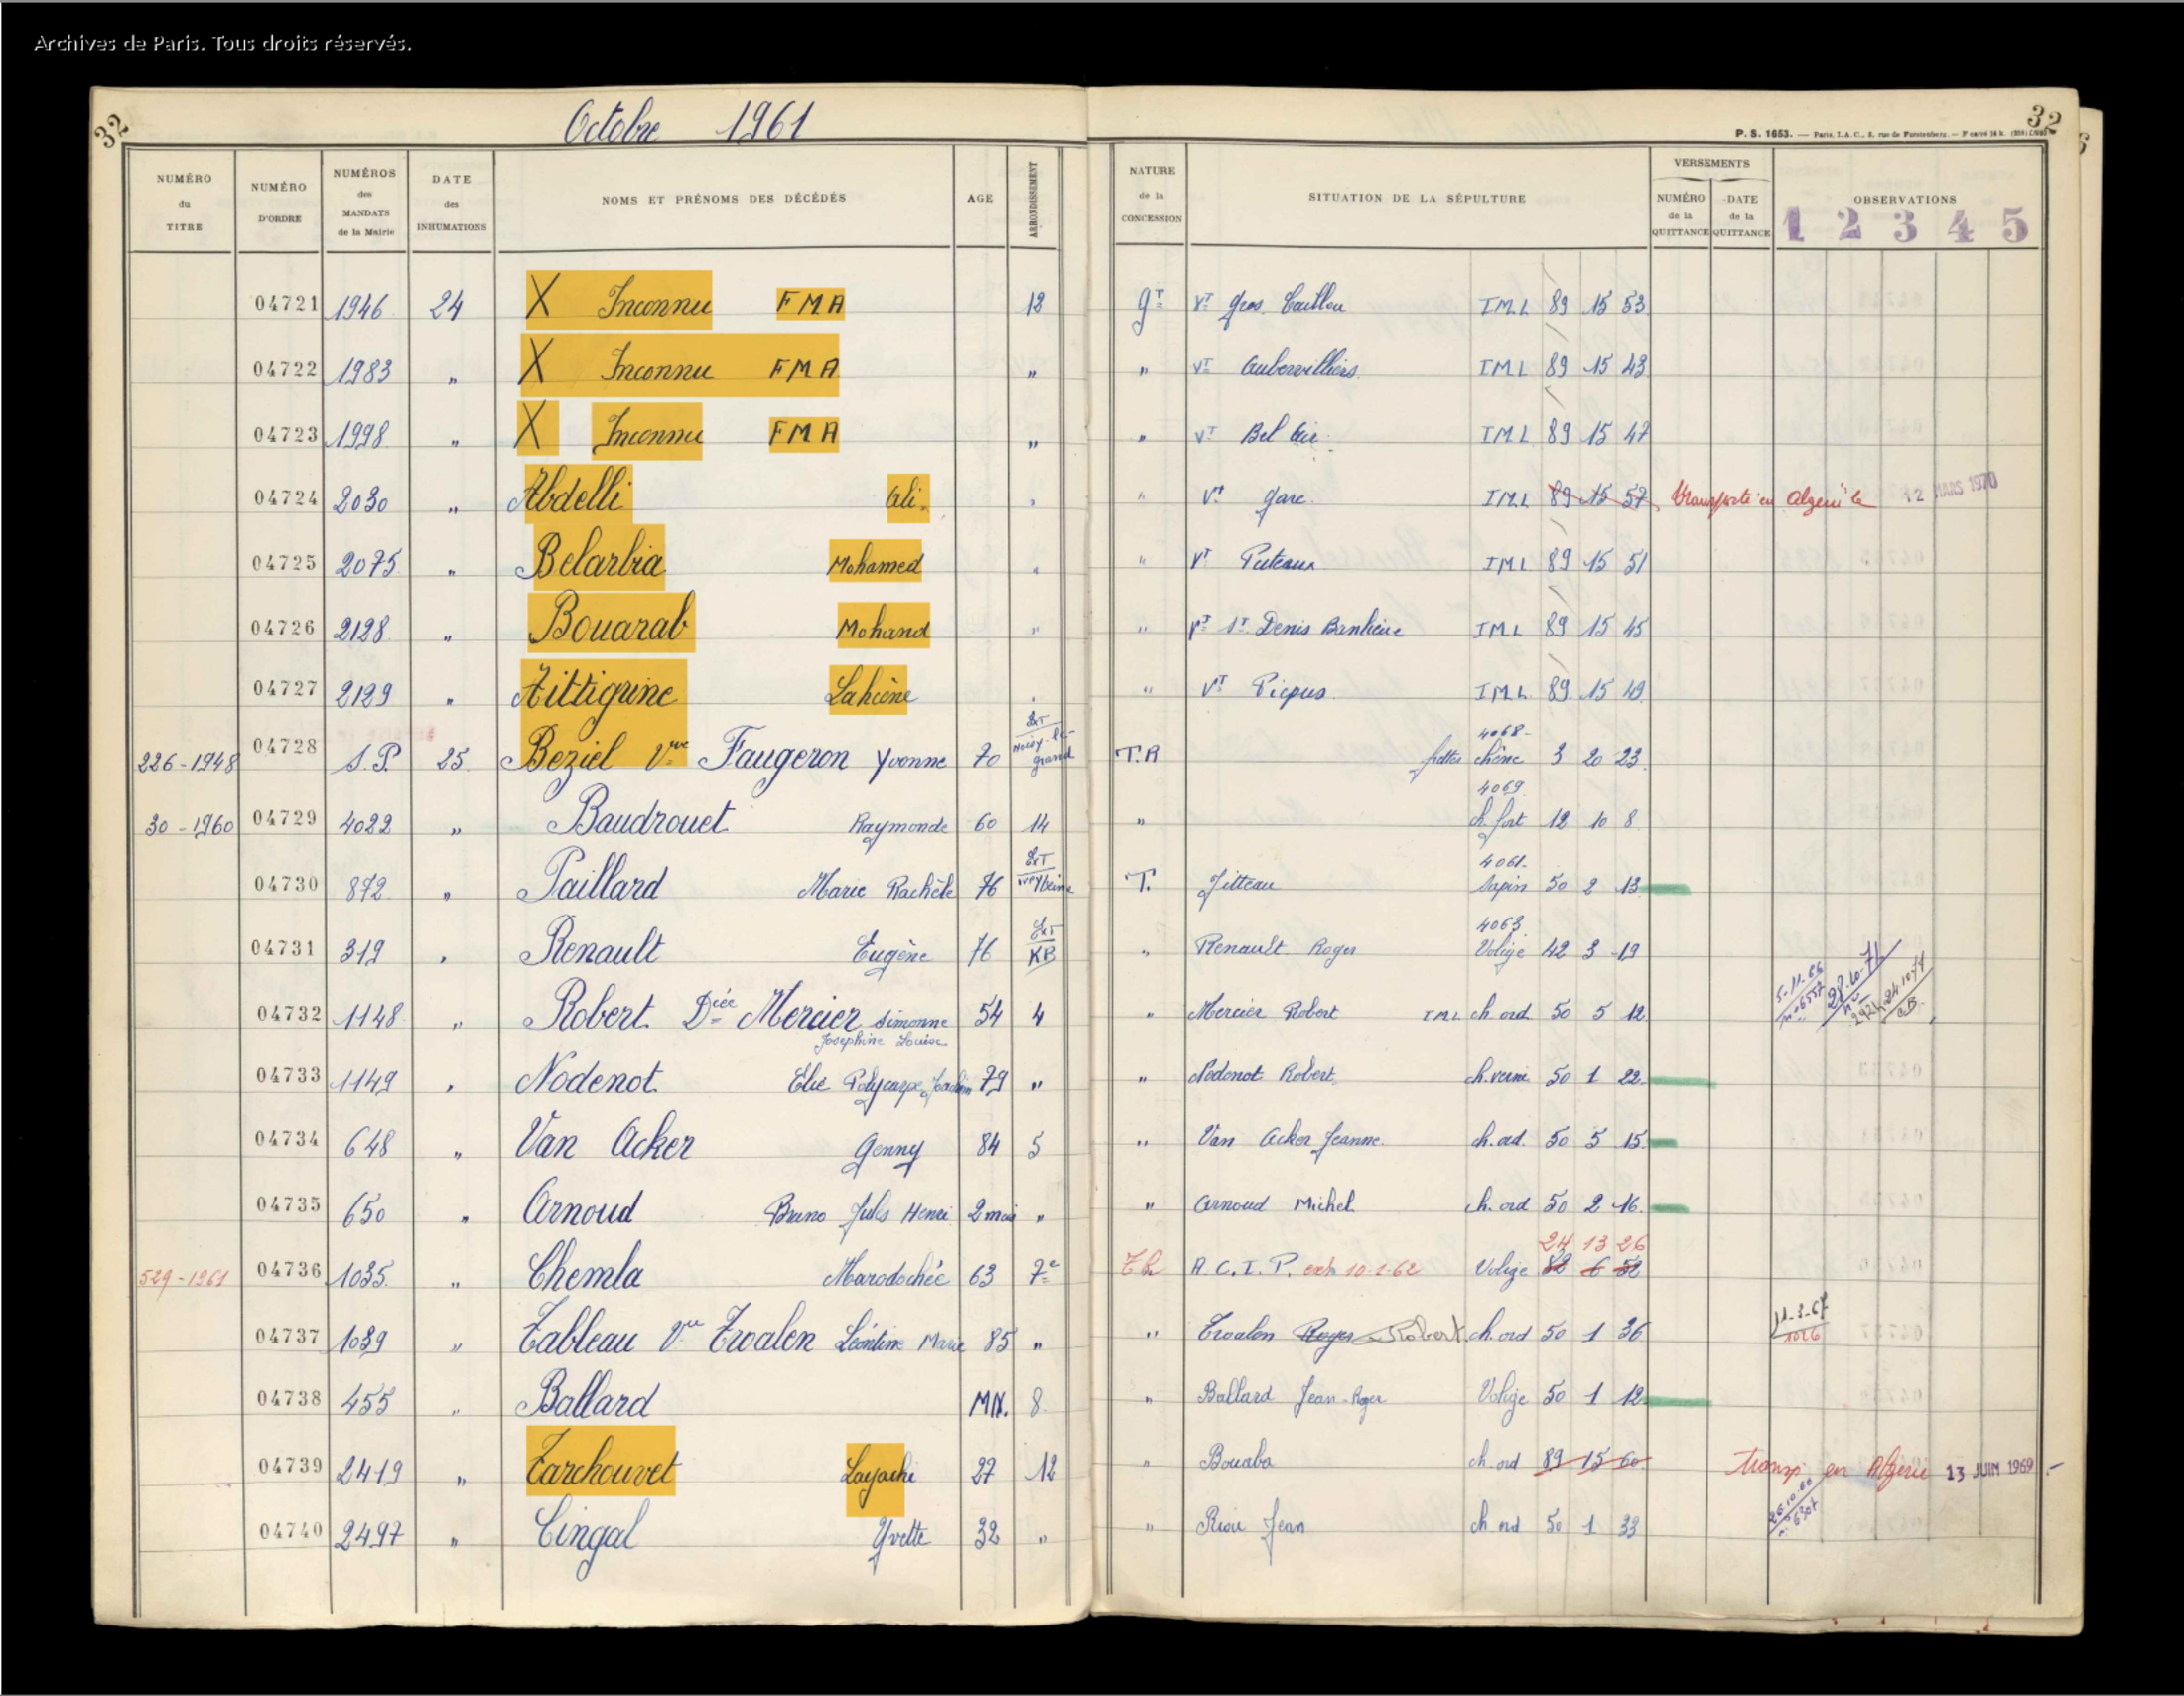 Archives de Paris. Tous droits réservés.
32 Octobre 1961 32
P. S. 1653. — Paris, I.A.C., 2, rue de Furstenberg. —
NUMÉRO du TITRE NUMÉRO D'ORDRE NUMÉROS des MANDATS de la Mairie DATE des INHUMATIONS NOMS ET PRÉNOMS DES DÉCÉDÉS AGE ARRONDISSEMENT NATURE de la CONCESSION SITUATION DE LA SÉPULTURE VERSEMENTS NUMÉRO de la QUITTANCE DATE de la QUITTANCE OBSERVATIONS 1 2 3 4 5
04721 1946 24 X Inconnu FMA 12 gT VT Gros Caillou IML 89 15 53
04722 1983 " X Inconnu FMA " " VT Aubervilliers IML 89 15 43
04723 1998 " X Inconnu FMA " " VT Bel Air IML 89 15 47
04724 2030 " Abdelli Ali " " VT gare IML 89 15 57 transporté en Algérie le 12 MARS 1970
04725 2075 " Belarbia Mohamed " " VT Puteaux IML 89 15 51
04726 2128 " Bouarab Mohand " " VT St Denis Banlieue IML 89 15 45
04727 2129 " Aittigrine Lahcène " " VT Picpus IML 89 15 49
226-1948 04728 S.P. 25 Beziel Vve Faugeron Yvonne 70 ExT Noisy-le-grand T.A 4068- chêne 3 20 23
30-1960 04729 4022 " Baudrouet Raymonde 60 14 " 4069 ch. fort 12 10 8
04730 872 " Paillard Marie Rachèle 76 ExT T. Jitteau 4061- Sapin 50 2 13
04731 319 " Renault Eugène 76 ExT KB " Renault Roger 4063 Volige 42 3 19
04732 1148 " Robert Dcée Mercier Simonne Josephine Louise 54 4 " Mercier Robert IML ch ord 50 5 12 5-11-66 28-10-71
04733 1149 " Nodenot Elie Polycarpe 79 " " Nodenot Robert ch. verni 50 1 22
04734 648 " Van Acker Genny 84 5 " Van Acker Jeanne ch. ord 50 5 15
04735 650 " Arnoud Bruno Jules Henri 2 mois " " Arnoud Michel ch. ord 50 2 16
24 13 26
529-1961 04736 1035 " Chemla Marodochée 63 7e A.C.I.P. exh 10-1-62 Volige 82 6 52
04737 1039 " Tableau Vve Troalen Léontine Marie 85 " " Troalen Roger Robert ch. ord 50 1 36 11-3-67 1026
04738 455 " Ballard MN. 8 " Ballard Jean-Roger Volige 50 1 12
04739 2419 " Tarchouvet Layachi 27 12 " Bouaba ch. ord 89 15 60 transp. en Algérie 13 JUIN 1969
04740 2497 " Cingal Yvette 32 " " Riou Jean ch ord 50 1 33